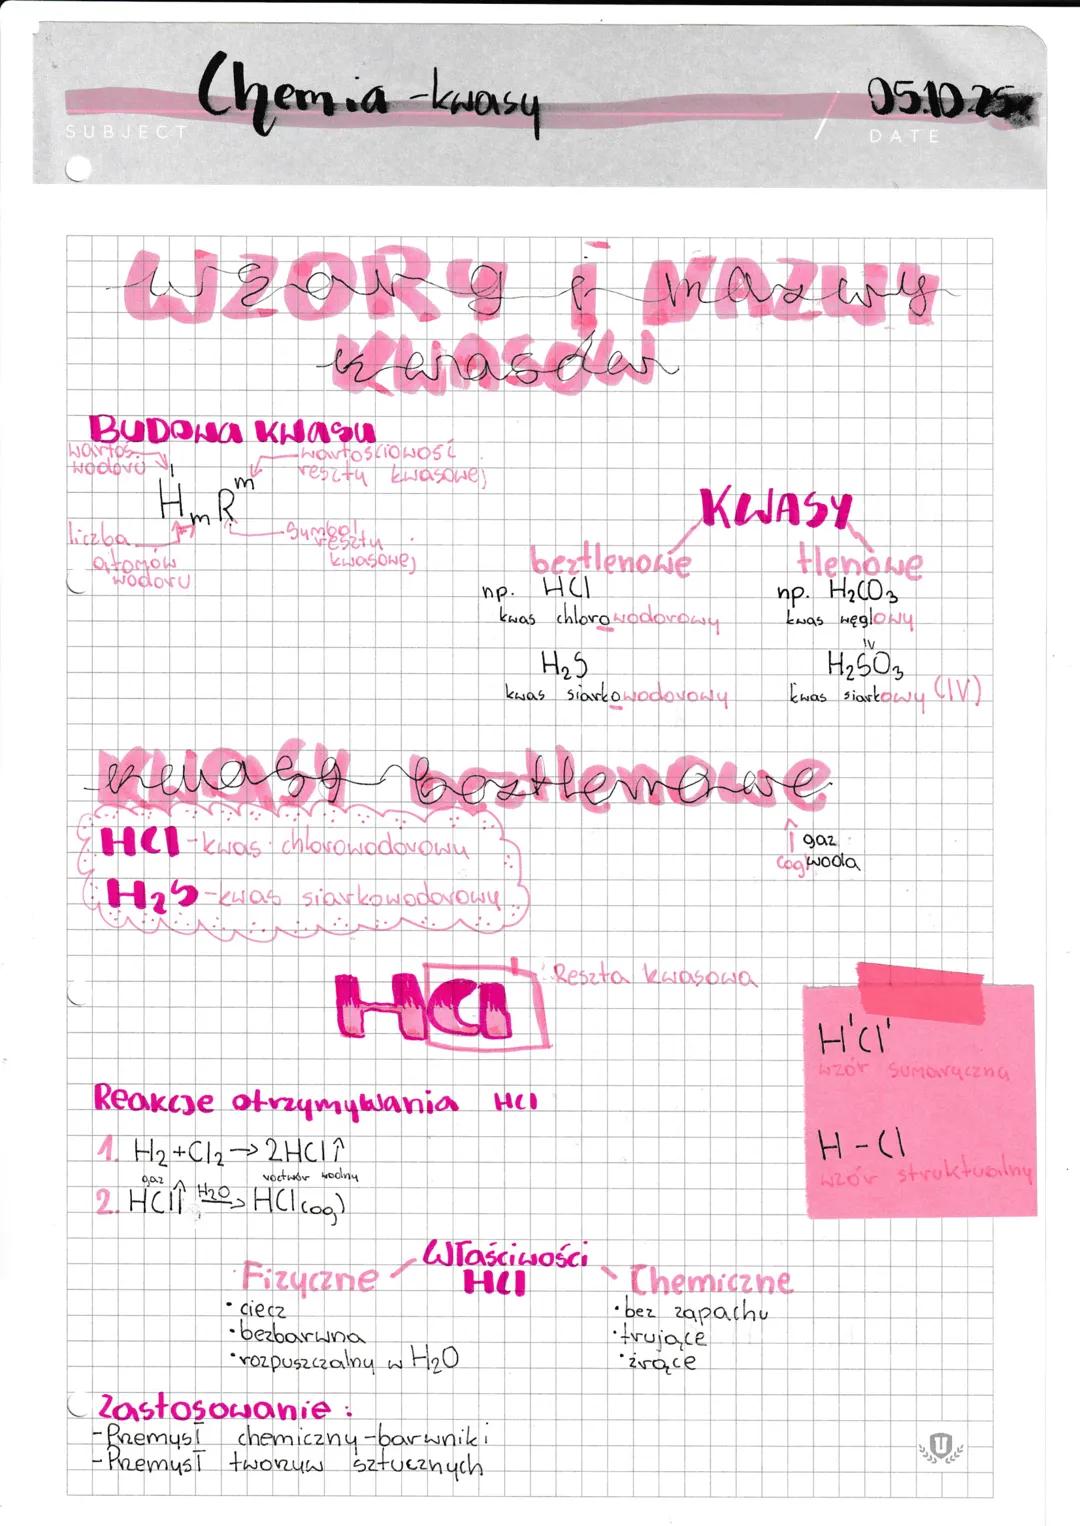 Chemia - kwasy
05.10.25r
SUBJECT
DATE
WZORY i NAZWY
KWASÓW
BUDOWA KWASU
wartoś.
wodoru
wartościowość
reszty kwasowej
HₘRᵐ
liczba
atomów
wodoru
symbol
reszty
kwasowej
KWASY
beztlenowe
tlenowe
np. HCl
kwas chlorowodorowy
np. H₂CO₃
kwas węglowy
H₂S
kwas siarkowodorowy
IV
H₂SO₃
kwas siarkowy (IV)
kwasy beztlenowe
HCl - kwas chlorowodorowy
H₂S - kwas siarkowodorowy
↑ gaz
woda
HCl
Reszta kwasowa
HᴵClᴵ
wzór sumaryczna
H - Cl
wzór strukturalny
Reakcje otrzymywania HCl
1. H₂ + Cl₂ → 2HCl↑
gaz
roztwór wodny
2. HCl↑ H₂O→ HCl(aq)
Właściwości
HCl
Fizyczne
• ciecz
• bezbarwna
• rozpuszczalny w H₂O
Chemiczne
• bez zapachu
• trujące
• żrące
Zastosowanie :
- Przemysł chemiczny - barwniki
- Przemysł tworzyw sztucznych
U